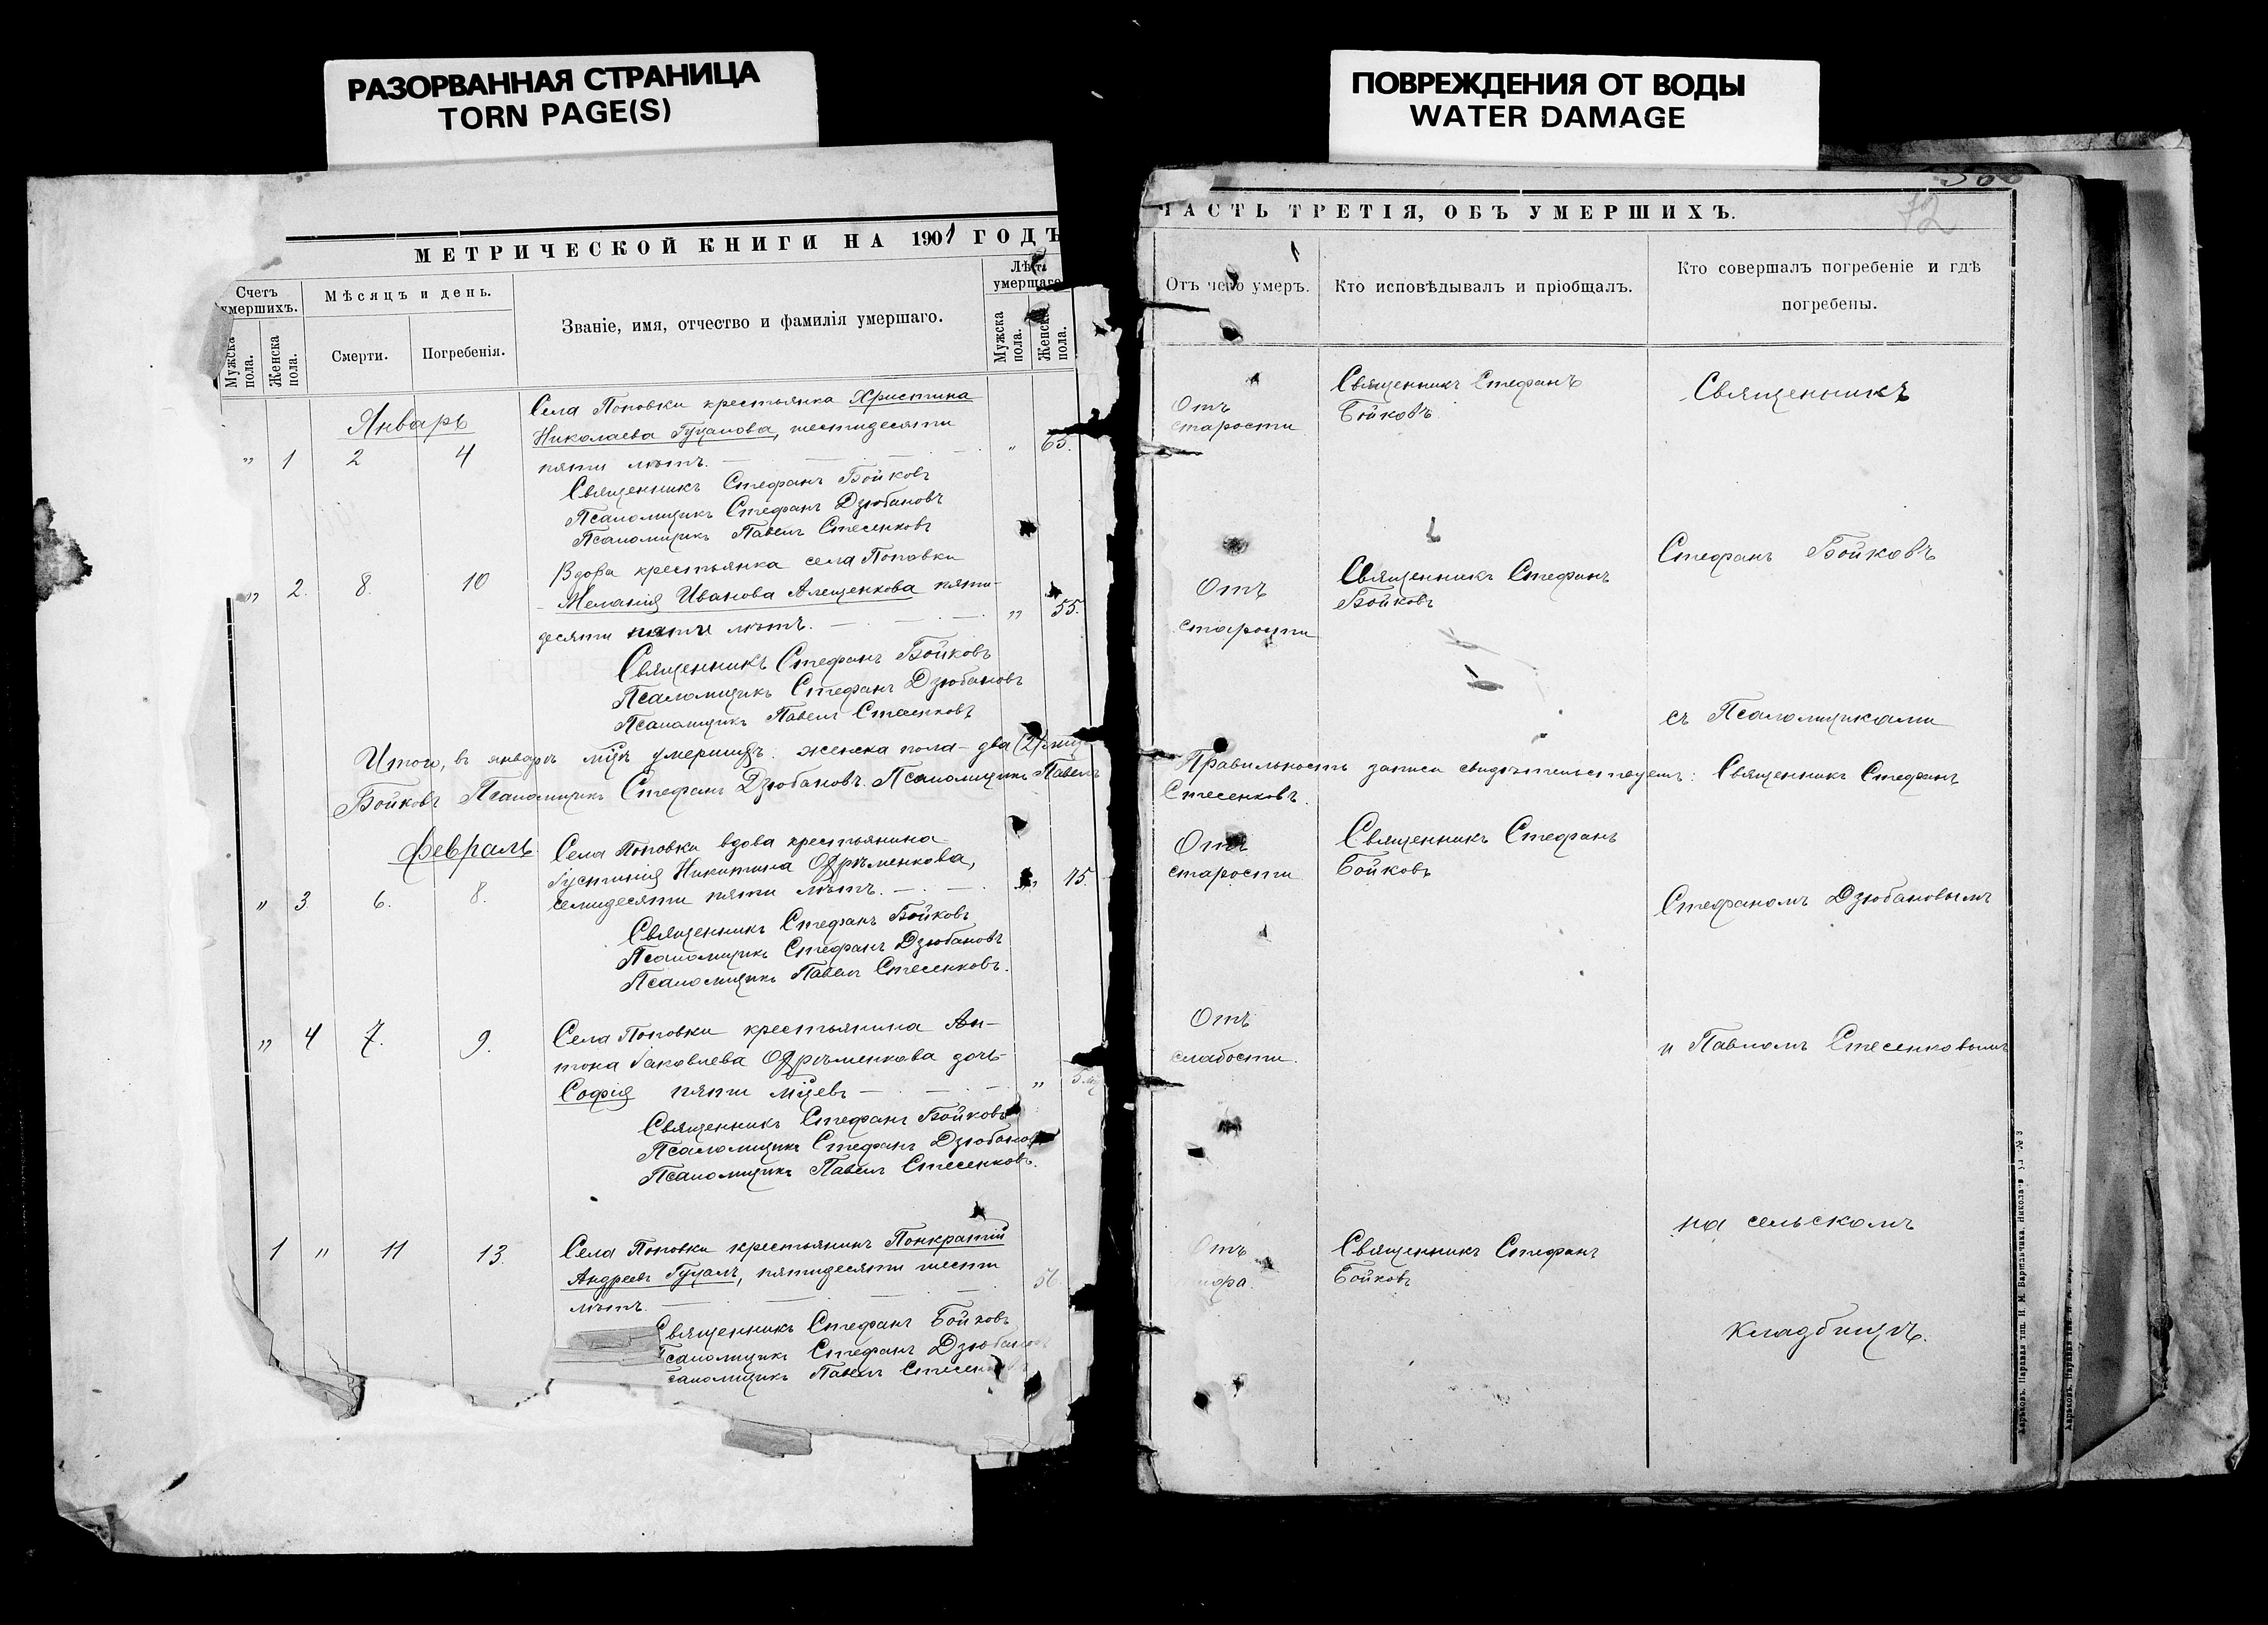 РАЗОРВАННАЯ СТРАНИЦА
TORN PAGE(S)
ПОВРЕЖДЕНИЯ ОТ ВОДЫ
WATER DAMAGE
МЕТРИЧЕСКОЙ КНИГИ НА 1901 ГОДЪ
Счетъ умершихъ.
Мужска пола.
Женска пола.
Мѣсяцъ и день.
Смерти.
Погребенія.
Званіе, имя, отчество и фамилія умершаго.
Лѣта умершаго
Мужска пола.
Женска пола.
Январь
Села Поповки крестьянка Христина
Николаева Гуцалова, шестидесяти
„ 1 2 4 пяти лѣтъ. „ 65.
Священникъ Стефанъ Бойковъ
Псаломщикъ Стефанъ Дзюбановъ
Псаломщикъ Павелъ Стесенковъ
Вдова крестьянка села Поповки
„ 2. 8. 10 Меланія Иванова Алещенкова пяти-
десяти пяти лѣтъ. „ 55.
Священникъ Стефанъ Бойковъ
Псаломщикъ Стефанъ Дзюбановъ
Псаломщикъ Павелъ Стесенковъ
Итого, въ январѣ мцѣ умершихъ: женска пола – два (2)
Бойковъ Псаломщикъ Стефанъ Дзюбановъ. Псаломщикъ Павелъ
Февраль
Села Поповки вдова крестьянина
Іустинія Никитина Офрѣменкова,
„ 3 6. 8. семидесяти пяти лѣтъ. „ 75.
Священникъ Стефанъ Бойковъ
Псаломщикъ Стефанъ Дзюбановъ
Псаломщикъ Павелъ Стесенковъ.
„ 4 7. 9. Села Поповки крестьянина Ан-
тона Іаковлева Офрѣменкова дочь
София пяти мцевъ „ 5 мц
Священникъ Стефанъ Бойковъ
Псаломщикъ Стефанъ Дзюбановъ
Псаломщикъ Павелъ Стесенковъ.
1 „ 11 13. Села Поповки крестьянинъ Понкратій
Андреевъ Гуцалъ, пятидесяти шести
лѣтъ. 56
Священникъ Стефанъ Бойковъ
Псаломщикъ Стефанъ Дзюбанов
саломщикъ Павелъ Стесен
72
ЧАСТЬ ТРЕТІЯ, ОБЪ УМЕРШИХЪ.
Отъ чего умеръ.
Кто исповѣдывалъ и пріобщалъ.
Кто совершалъ погребеніе и гдѣ погребены.
Отъ старости
Священникъ Стефанъ
Бойковъ
Священникъ
Отъ
старости
Священникъ Стефанъ
Бойковъ
Стефанъ Бойковъ
съ Псаломщиками
Правильность записи свидѣтельствуемъ: Священникъ Стефанъ
Стесенковъ.
Отъ
старости
Священникъ Стефанъ
Бойковъ
Стефаномъ Дзюбановымъ
Отъ
слабости.
и Павломъ Стесенковымъ
на сельскомъ
Отъ
Священникъ Стефанъ
Бойковъ
кладбищѣ.